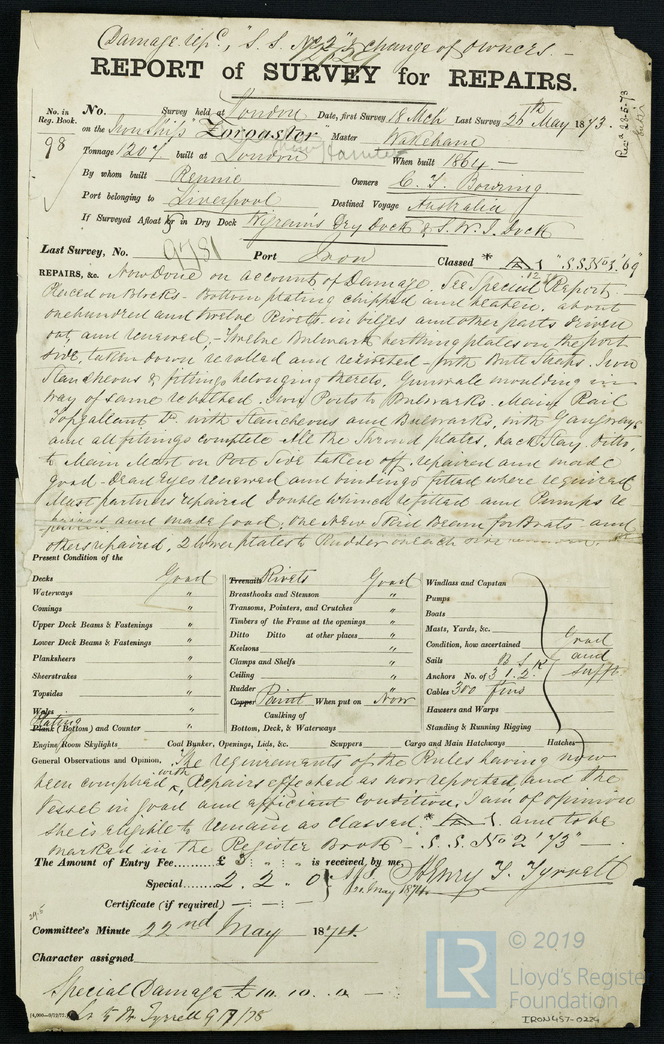 Damage rep^c, "S. S. No 2" & change of owners. -
REPORT of SURVEY for REPAIRS.
No. in Reg. Book.
98
No. Survey held at London Date, first Survey 18 Mch Last Survey 20th May 1873.
on the Iron Ship "Zoroaster" Master Wakeham
Tonnage 1207 built at London When built 1864 -
By whom built Rennie Owners C. T. Bowring
Port belonging to Liverpool Destined Voyage Australia
If Surveyed Afloat or in Dry Dock Wigram's Dry Dock & S. W. I. Dock
Last Survey, No. 9781 Port Iron Classed "S.S. No 1. '69"
REPAIRS, &c. Now Done on account of Damage. See Special Report -
Placed on Blocks - Bottom plating chipped and beaten. about
one hundred and twelve Rivets in bilges and other parts driven
out, and renewed, - Twelve Bulwark berthing plates on the port
side, taken down rerolled and reriveted - with Butt Straps. Iron
Stancheons & fittings belonging thereto. Gunwale moulding in
way of same Iron Ports to Bulwarks. Main Rail
Topgallant Do with Stancheons and Bulwarks, with Gangways
and all fittings complete All the Shroud plates, back Stay ditto,
to Main Mast on Port Side taken off, repaired and made
good - Dead Eyes renewed and bindings fitted where required
Mast partners repaired Double Winch refitted and Pumps re
and made good, one New Steel Beam for Boats and
others repaired, 2 lower plates to Rudder on each side
Present Condition of the
Decks Good
Waterways "
Comings "
Upper Deck Beams & Fastenings "
Lower Deck Beams & Fastenings "
Planksheers "
Sheerstrakes "
Topsides "
Wales "
Plating
Plank (Bottom) and Counter "
Treenails Rivets Good
Breasthooks and Stemson "
Transoms, Pointers, and Crutches "
Timbers of the Frame at the openings "
Ditto Ditto at other places "
Keelsons "
Clamps and Shelfs "
Ceiling "
Rudder "
Copper Paint When put on Now
Caulking of
Bottom, Deck, & Waterways
Windlass and Capstan
Pumps
Boats
Masts, Yards, &c.
Condition, how ascertained
Sails
Anchors No. of 3. 1. 2.
Cables 300 fms
Hawsers and Warps
Standing & Running Rigging
Good
and
Sufft.
B S K
Engine Room Skylights Coal Bunker, Openings, Lids, &c. Scuppers Cargo and Main Hatchways Hatches
General Observations and Opinion, The requirements of the Rules having now
been complied with, Repairs effected as now reported, and the
Vessel in good and efficient condition. I am of opinion
she is eligible to remain as classed and to be
marked in the Register Book - "S. S. No 2 '73" -
The Amount of Entry Fee £ 3 " : " is received by me,
Special 2. 2. 0
20 May 1874
Henry T. Tyrrell
Certificate (if required)
Committee's Minute 22nd May 1874.
Character assigned
Special Damage £ 10. 10. 0. -
Tyrrell
© 2019
LR
Lloyd's Register
Foundation
IRON457-0224